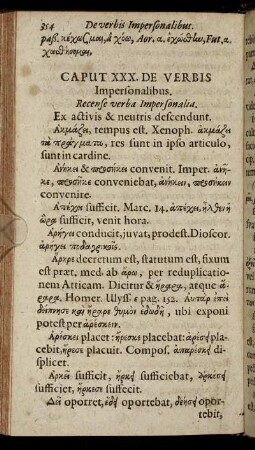 354 De verbis Impersonalibus.
CAPUT XXX. DE VERBIS
Impersonalibus.
Recense verba Impersonalia.
Ex activis & neutris descendunt.
Ακμάζει, tempus est. Xenoph. ἀκμάζει
τὰ πράγματα, res sunt in ipso articulo,
sunt in cardine.
Ανήκει & προσήκει convenit. Imper. ἀνῆ-
κε, προσῆκε conveniebat, ἀνήκειν, προσήκειν
convenire.
Απέχει sufficit. Marc. 14. ἀπέχει, ἦλθεν ἡ
ὥρα sufficit, venit hora.
Αρήγει conducit, juvat, prodest. Dioscor.
ἀρήγει
Αρηρε decretum est, statutum est, fixum
est præt. med. ab ἄρω, per reduplicatio-
nem Atticam. Dicitur & ἤραρε, atque ἄ-
ραρε. Homer. Ulyss. ε pag. 152. Αυτὰρ ἐπεὶ
δείπνησε καὶ ἤραρε θυμὸν ἐδωδῇ, ubi exponi
potest per ἀρέσκειν.
Αρέσκει placet: ἤρεσκε placebat: ἀρέσει pla-
cebit, ἤρεσε placuit. Compos. ἀπαρέσκει di-
splicet.
Αρκεῖ sufficit, ἤρκει sufficiebat, ἀρκέσει
sufficiet, ἤρκεσε suffecit.
Δεῖ oportet, ἔδει oportebat, δεήσει opor-
tebit,